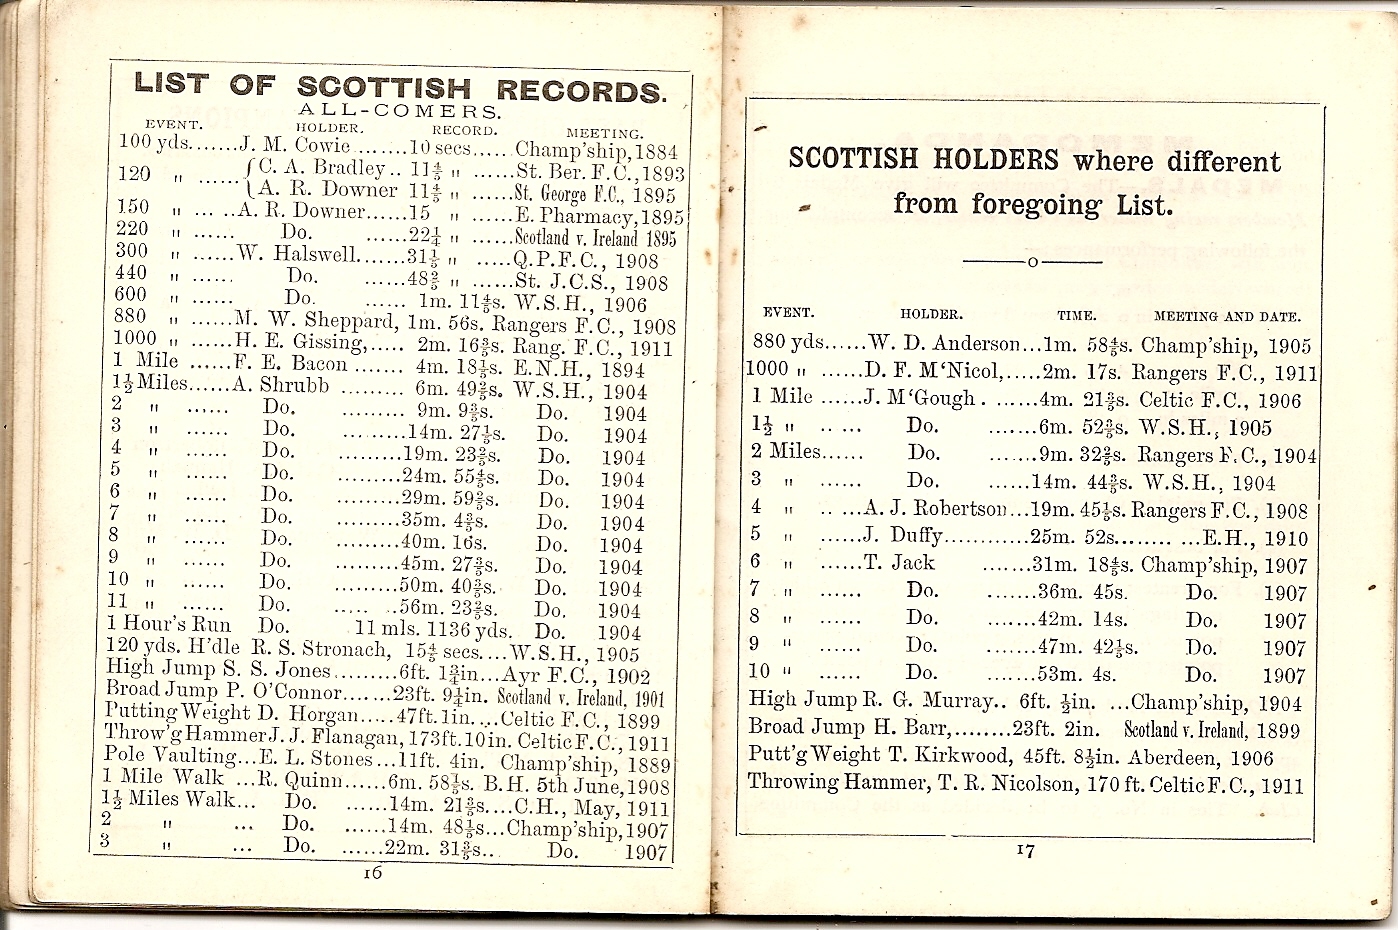 LIST OF SCOTTISH RECORDS.
ALL-COMERS.
EVENT. HOLDER. RECORD. MEETING.
100 yds.......J. M. Cowie .......10 secs..... Champ'ship, 1884
120 " ......{C. A. Bradley.. 11⅘ " ......St. Ber. F.C., 1893
{A. R. Downer 11⅘ " ......St. George F.C., 1895
150 " ... ..A. R. Downer......15 " ......E. Pharmacy, 1895
220 " ...... Do. ......22¼ " ......Scotland v. Ireland 1895
300 " ......W. Halswell.......31⅕ " .....Q.P.F.C., 1908
440 " ...... Do. ......48⅖ " ......St. J.C.S., 1908
600 " ...... Do. ...... 1m. 11⅘s. W.S.H., 1906
880 " ......M. W. Sheppard, 1m. 56s. Rangers F.C., 1908
1000 " ......H. E. Gissing,..... 2m. 16⅗s. Rang. F.C., 1911
1 Mile ......F. E. Bacon ....... 4m. 18⅕s. E.N.H., 1894
1½ Miles......A. Shrubb ......... 6m. 49⅗s. W.S.H., 1904
2 " ...... Do. ......... 9m. 9⅗s. Do. 1904
3 " ...... Do. .........14m. 27⅕s. Do. 1904
4 " ...... Do. .........19m. 23⅖s. Do. 1904
5 " ...... Do. .........24m. 55⅘s. Do. 1904
6 " ...... Do. .........29m. 59⅖s. Do. 1904
7 " ...... Do. .........35m. 4⅗s. Do. 1904
8 " ...... Do. .........40m. 16s. Do. 1904
9 " ...... Do. .........45m. 27⅗s. Do. 1904
10 " ...... Do. .........50m. 40⅗s. Do. 1904
11 " ...... Do. ..... ..56m. 23⅖s. Do. 1904
1 Hour's Run Do. 11 mls. 1136 yds. Do. 1904
120 yds. H'dle R. S. Stronach, 15⅘ secs....W.S.H., 1905
High Jump S. S. Jones.........6ft. 1¾in...Ayr F.C., 1902
Broad Jump P. O'Connor......23ft. 9¼in. Scotland v. Ireland, 1901
Putting Weight D. Horgan.....47ft. 1in. ...Celtic F.C., 1899
Throw'g Hammer J. J. Flanagan, 173ft. 10in. Celtic F.C., 1911
Pole Vaulting...E. L. Stones...11ft. 4in. Champ'ship, 1889
1 Mile Walk ...R. Quinn......6m. 58⅕s. B.H. 5th June, 1908
1½ Miles Walk... Do. ......14m. 21⅗s....C.H., May, 1911
2 " ... Do. ......14m. 48⅕s...Champ'ship, 1907
3 " ... Do. ......22m. 31⅗s.. Do. 1907
16
SCOTTISH HOLDERS where different
from foregoing List.
EVENT. HOLDER. TIME. MEETING AND DATE.
880 yds......W. D. Anderson...1m. 58⅘s. Champ'ship, 1905
1000 " ......D. F. M'Nicol,.....2m. 17s. Rangers F.C., 1911
1 Mile ......J. M'Gough . ......4m. 21⅗s. Celtic F.C., 1906
1½ " .. ... Do. .......6m. 52⅗s. W.S.H., 1905
2 Miles...... Do. .......9m. 32⅖s. Rangers F.C., 1904
3 " ...... Do. ......14m. 44⅗s. W.S.H., 1904
4 " .. ...A. J. Robertson...19m. 45⅕s. Rangers F.C., 1908
5 " ......J. Duffy............25m. 52s........ ...E.H., 1910
6 " ......T. Jack .......31m. 18⅘s. Champ'ship, 1907
7 " ...... Do. .......36m. 45s. Do. 1907
8 " ...... Do. .......42m. 14s. Do. 1907
9 " ...... Do. .......47m. 42⅕s. Do. 1907
10 " ...... Do. .......53m. 4s. Do. 1907
High Jump R. G. Murray.. 6ft. ½in. ...Champ'ship, 1904
Broad Jump H. Barr,........23ft. 2in. Scotland v. Ireland, 1899
Putt'g Weight T. Kirkwood, 45ft. 8½in. Aberdeen, 1906
Throwing Hammer, T. R. Nicolson, 170 ft. Celtic F.C., 1911
17